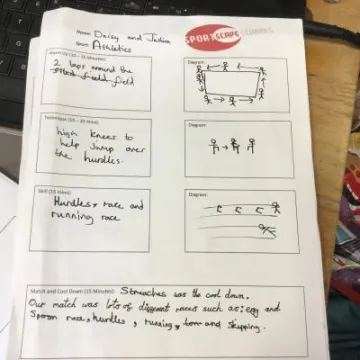 Name: Daisy and
SPORTSCAPE LEARNERS
Sport: Athletics
Warm Up (10 - 15 Minutes)
2 laps around the
field field
Diagram:
Technique (15 - 20 mins)
high knees to
help jump over
the hurdles.
Diagram:
Skill (15 mins)
Hurdles, race and
running race
Diagram:
Match and Cool Down (15 Minutes) Streaches was the cool down.
Our match was lots of different races such as: egg and
Spoon race, hurdles, running, and Skipping.